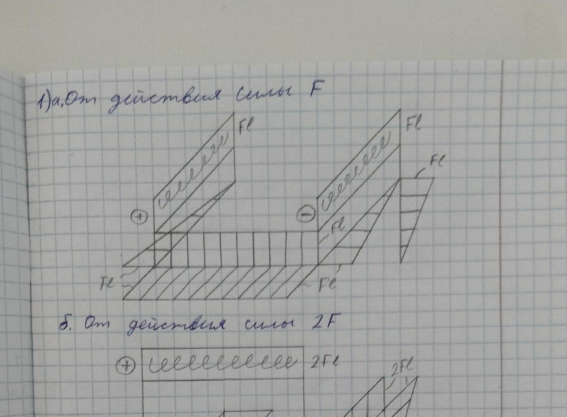 1) а. От действия силы F
Fl
Fl
Fl
+
−
Fl
Fl
Fl
б. От действия силы 2F
+
2Fl
2Fl